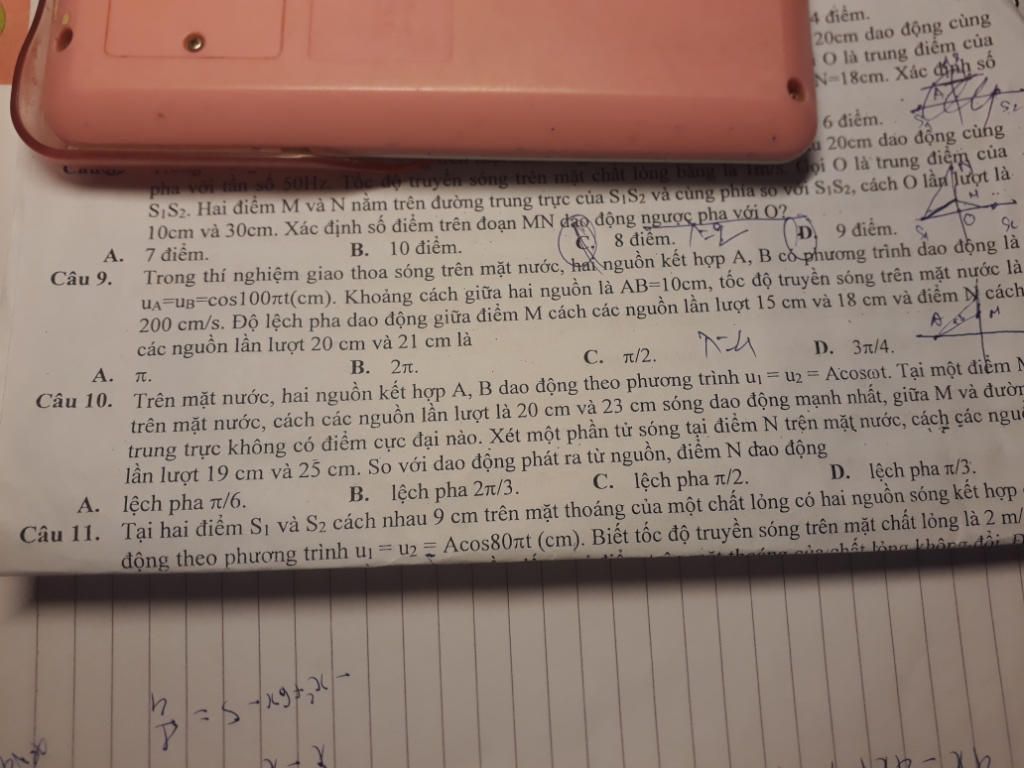 4 điểm.
20cm dao động cùng
O là trung điểm của
N=18cm. Xác định số
6 điểm.
20cm dao động cùng
pha với tần số 50Hz. Tốc độ truyền sóng trên mặt chất lỏng bằng là 1m/s. Gọi O là trung điểm của
S₁S₂. Hai điểm M và N nằm trên đường trung trực của S₁S₂ và cùng phía so với S₁S₂, cách O lần lượt là
10cm và 30cm. Xác định số điểm trên đoạn MN dao động ngược pha với O?
A. 7 điểm. B. 10 điểm. C. 8 điểm. D. 9 điểm.
Câu 9. Trong thí nghiệm giao thoa sóng trên mặt nước, hai nguồn kết hợp A, B có phương trình dao động là
uA=uB=cos100πt(cm). Khoảng cách giữa hai nguồn là AB=10cm, tốc độ truyền sóng trên mặt nước là
200 cm/s. Độ lệch pha dao động giữa điểm M cách các nguồn lần lượt 15 cm và 18 cm và điểm N cách
các nguồn lần lượt 20 cm và 21 cm là
A. π. B. 2π. C. π/2. λ=4 D. 3π/4.
Câu 10. Trên mặt nước, hai nguồn kết hợp A, B dao động theo phương trình u₁ = u₂ = Acosωt. Tại một điểm
trên mặt nước, cách các nguồn lần lượt là 20 cm và 23 cm sóng dao động mạnh nhất, giữa M và
trung trực không có điểm cực đại nào. Xét một phần tử sóng tại điểm N trện mặt nước, cách các
lần lượt 19 cm và 25 cm. So với dao động phát ra từ nguồn, điểm N dao động
A. lệch pha π/6. B. lệch pha 2π/3. C. lệch pha π/2. D. lệch pha π/3.
Câu 11. Tại hai điểm S₁ và S₂ cách nhau 9 cm trên mặt thoáng của một chất lỏng có hai nguồn sóng kết hợp
động theo phương trình u₁ = u₂ = Acos80πt (cm). Biết tốc độ truyền sóng trên mặt chất lỏng là 2 m/